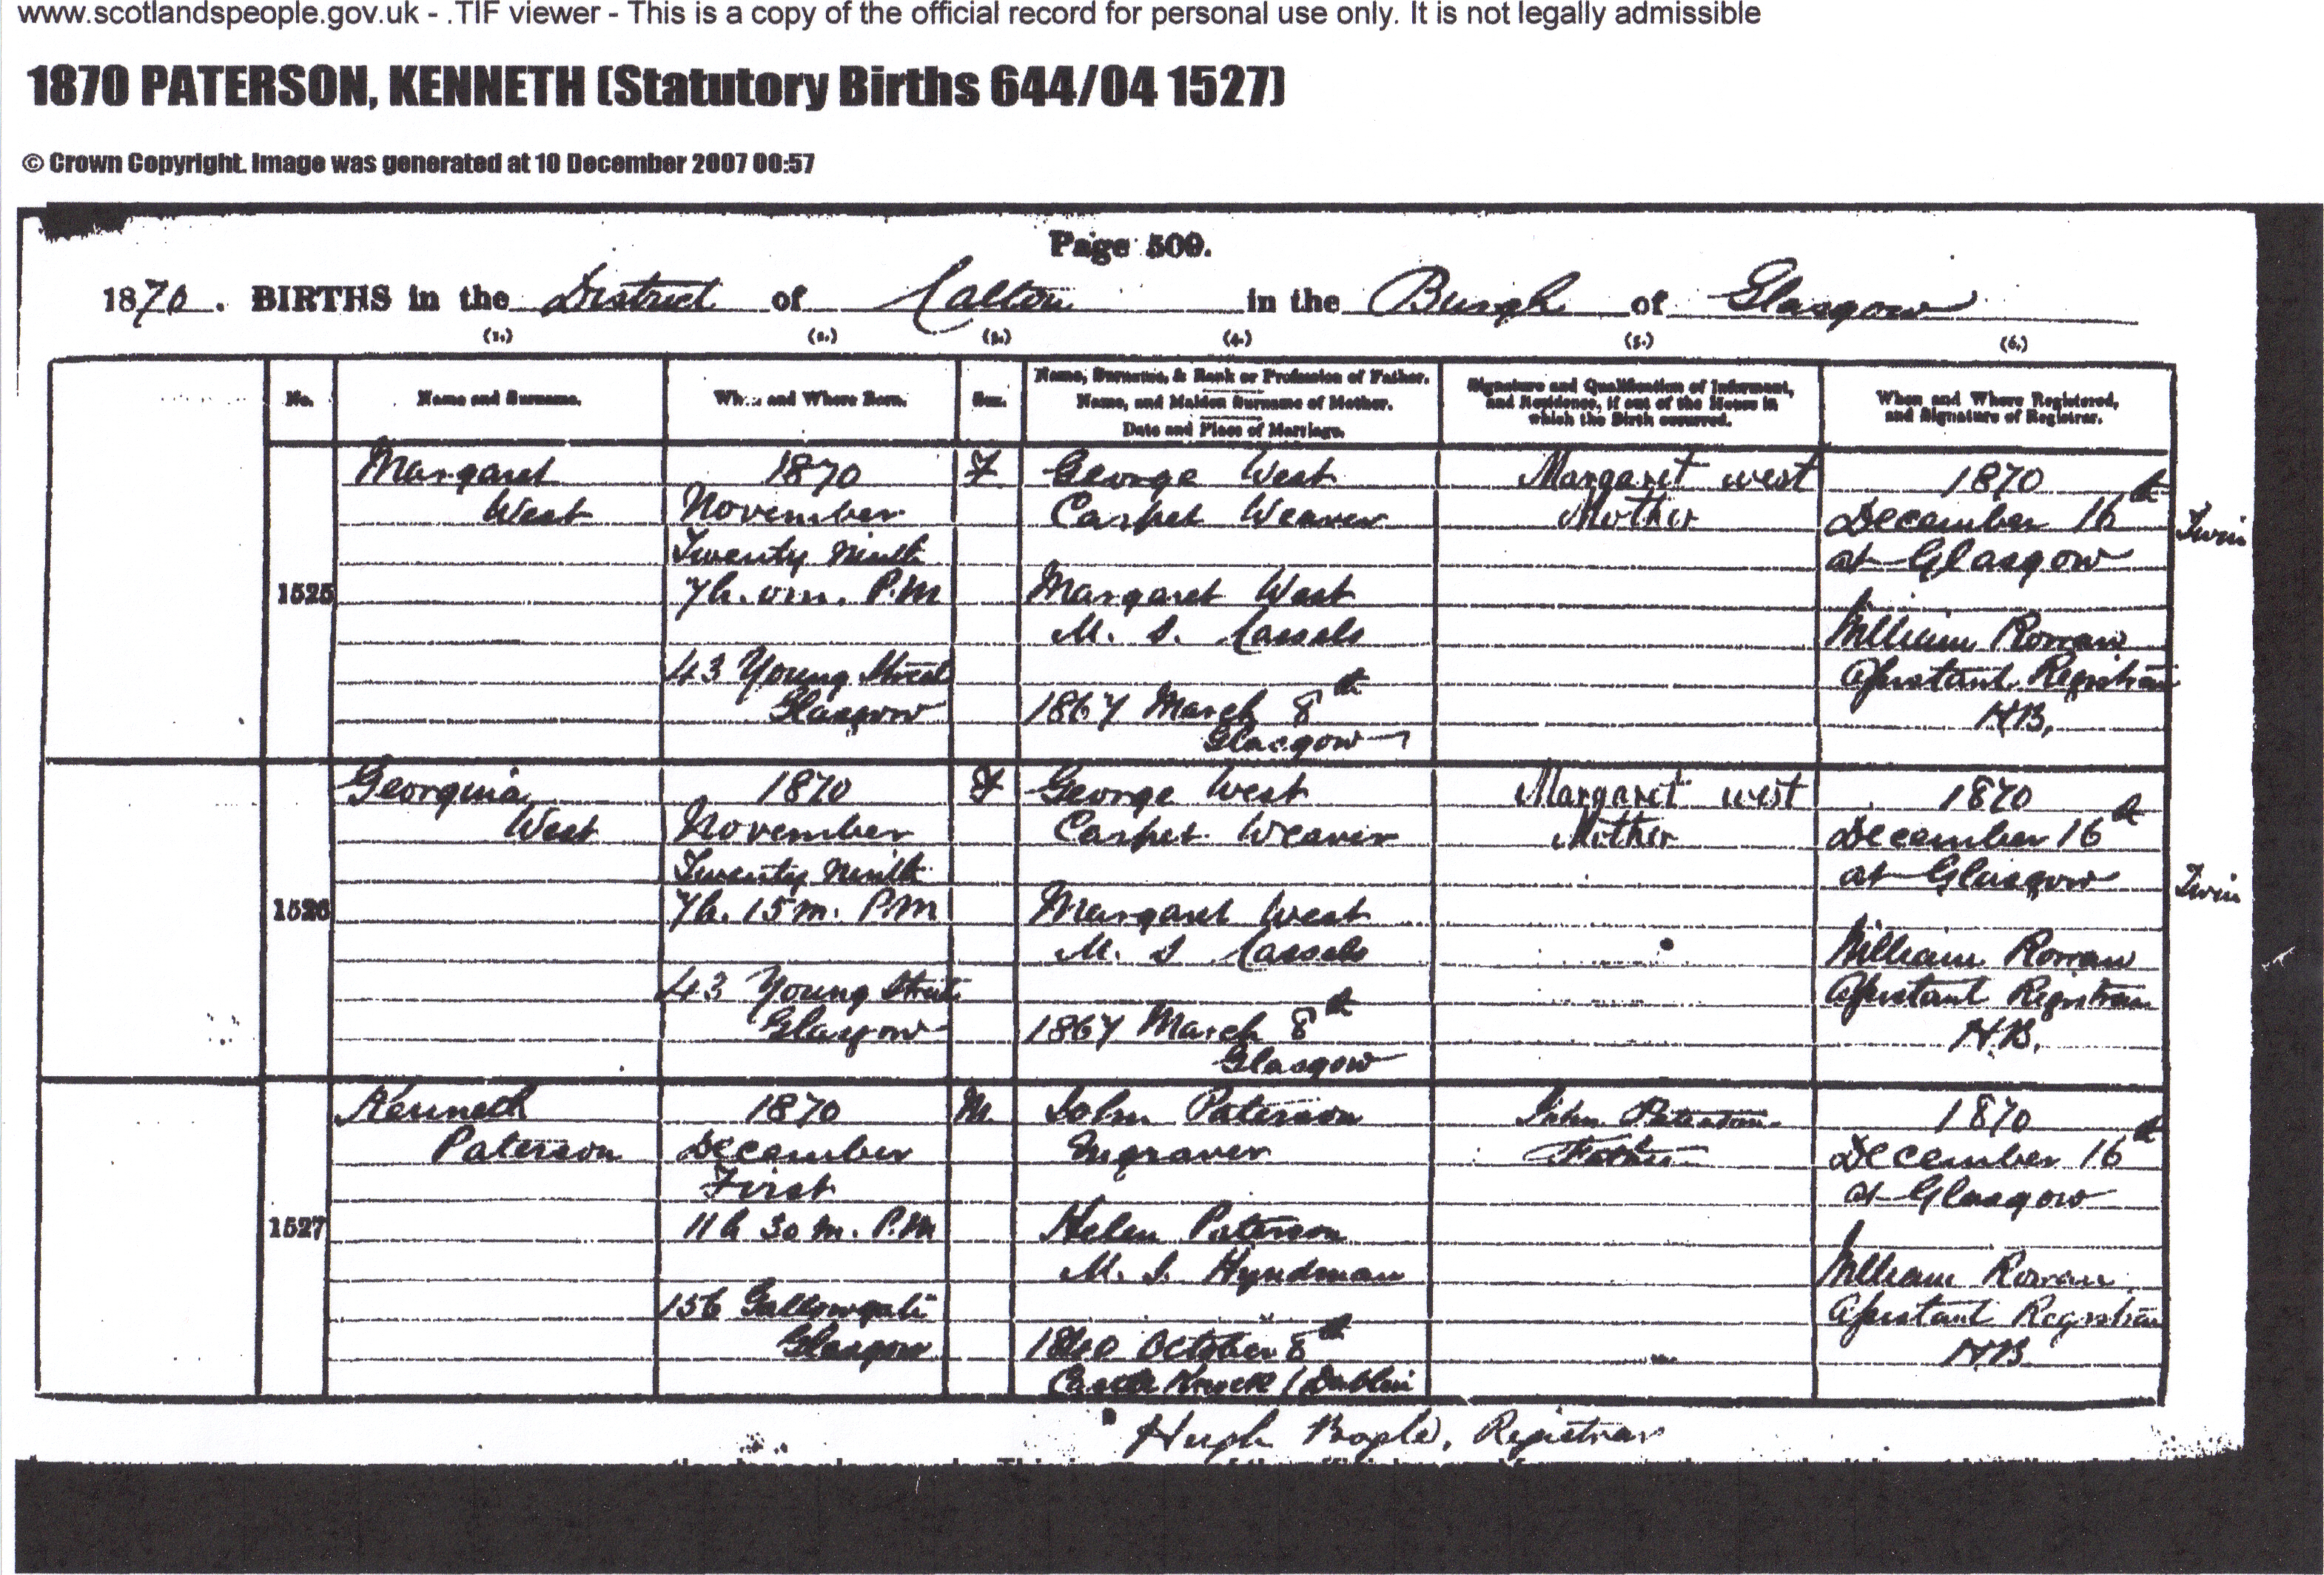 www.scotlandspeople.gov.uk - .TIF viewer - This is a copy of the official record for personal use only. It is not legally admissible
1870 PATERSON, KENNETH (Statutory Births 644/04 1527)
© Crown Copyright. Image was generated at 10 December 2007 00:57
Page 509.
1870. BIRTHS in the District of Calton in the Burgh of Glasgow
(1.) (2.) (3.) (4.) (5.) (6.)
No.
Name and Surname.
When and Where Born.
Sex.
Name, Surname, & Rank or Profession of Father.
Name, and Maiden Surname of Mother.
Date and Place of Marriage.
Signature and Qualification of Informant,
and Residence, if out of the House in
which the Birth occurred.
When and Where Registered,
and Signature of Registrar.
1525
Margaret
West
1870
November
Twenty Ninth
7h. 0m. P.M
43 Young Street
Glasgow
F
George West
Carpet Weaver
Margaret West
M. S. Cassels
1867 March 8th
Glasgow
Margaret west
Mother
1870
December 16th
at Glasgow
William Rowan
Assistant Registrar
H.B.
Twin
1526
Georgina
West
1870
November
Twenty Ninth
7h. 15m. P.M
43 Young Street
Glasgow
F
George West
Carpet Weaver
Margaret West
M. S Cassels
1867 March 8th
Glasgow
Margaret west
Mother
1870
December 16th
at Glasgow
William Rowan
Assistant Registrar
H.B.
Twin
1527
Kenneth
Paterson
1870
December
First
11h 30m. P.M
156 Gallowgate
Glasgow
M.
John Paterson
Engraver
Helen Paterson
M. S. Hyndman
October 8th
Castle Knock / Dublin
John Paterson
Father
1870
December 16th
at Glasgow
William Rowan
Assistant Registrar
H.B
Hugh Bogle, Registrar